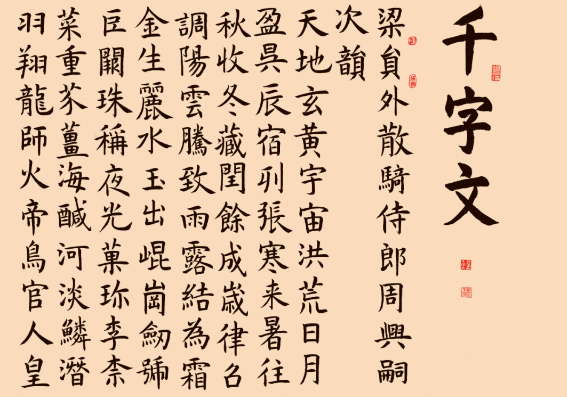 千字文
梁貟外散騎侍郎周興嗣
次韻
天地玄黃宇宙洪荒日月
盈昃辰宿列張寒来暑往
秋收冬藏閏餘成歲律召
調陽雲騰致雨露結為霜
金生麗水玉出崐崗劒號
巨闕珠稱夜光菓珎李柰
菜重芥薑海醎河淡鱗潛
羽翔龍師火帝鳥官人皇